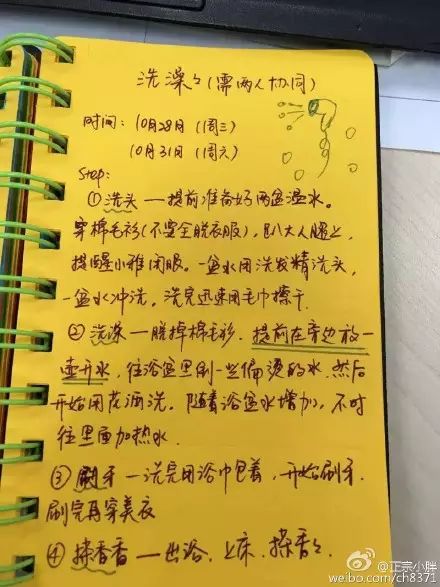 洗澡々(需两人协同)
时间：10月28日(周三)
10月31日(周六)
Step：
①洗头—提前准备好两盆温水。
穿棉毛衫(不要全脱衣服),趴大人腿上,
提醒小雅闭眼。一盆水用洗发精洗头,
一盆水冲洗,洗完迅速用毛巾擦干.
②洗澡—脱掉棉毛衫.提前在旁边放一
壶开水,往浴盆里倒一些偏烫的水.然后
开始用花洒洗.随着浴盆水增加,不时
往里面加热水.
③刷牙—洗完用浴巾包着,开始刷牙.
刷完再穿美衣
④搽香香—出浴.上床.搽香々.
@正宗小胖
weibo.com/ch8371